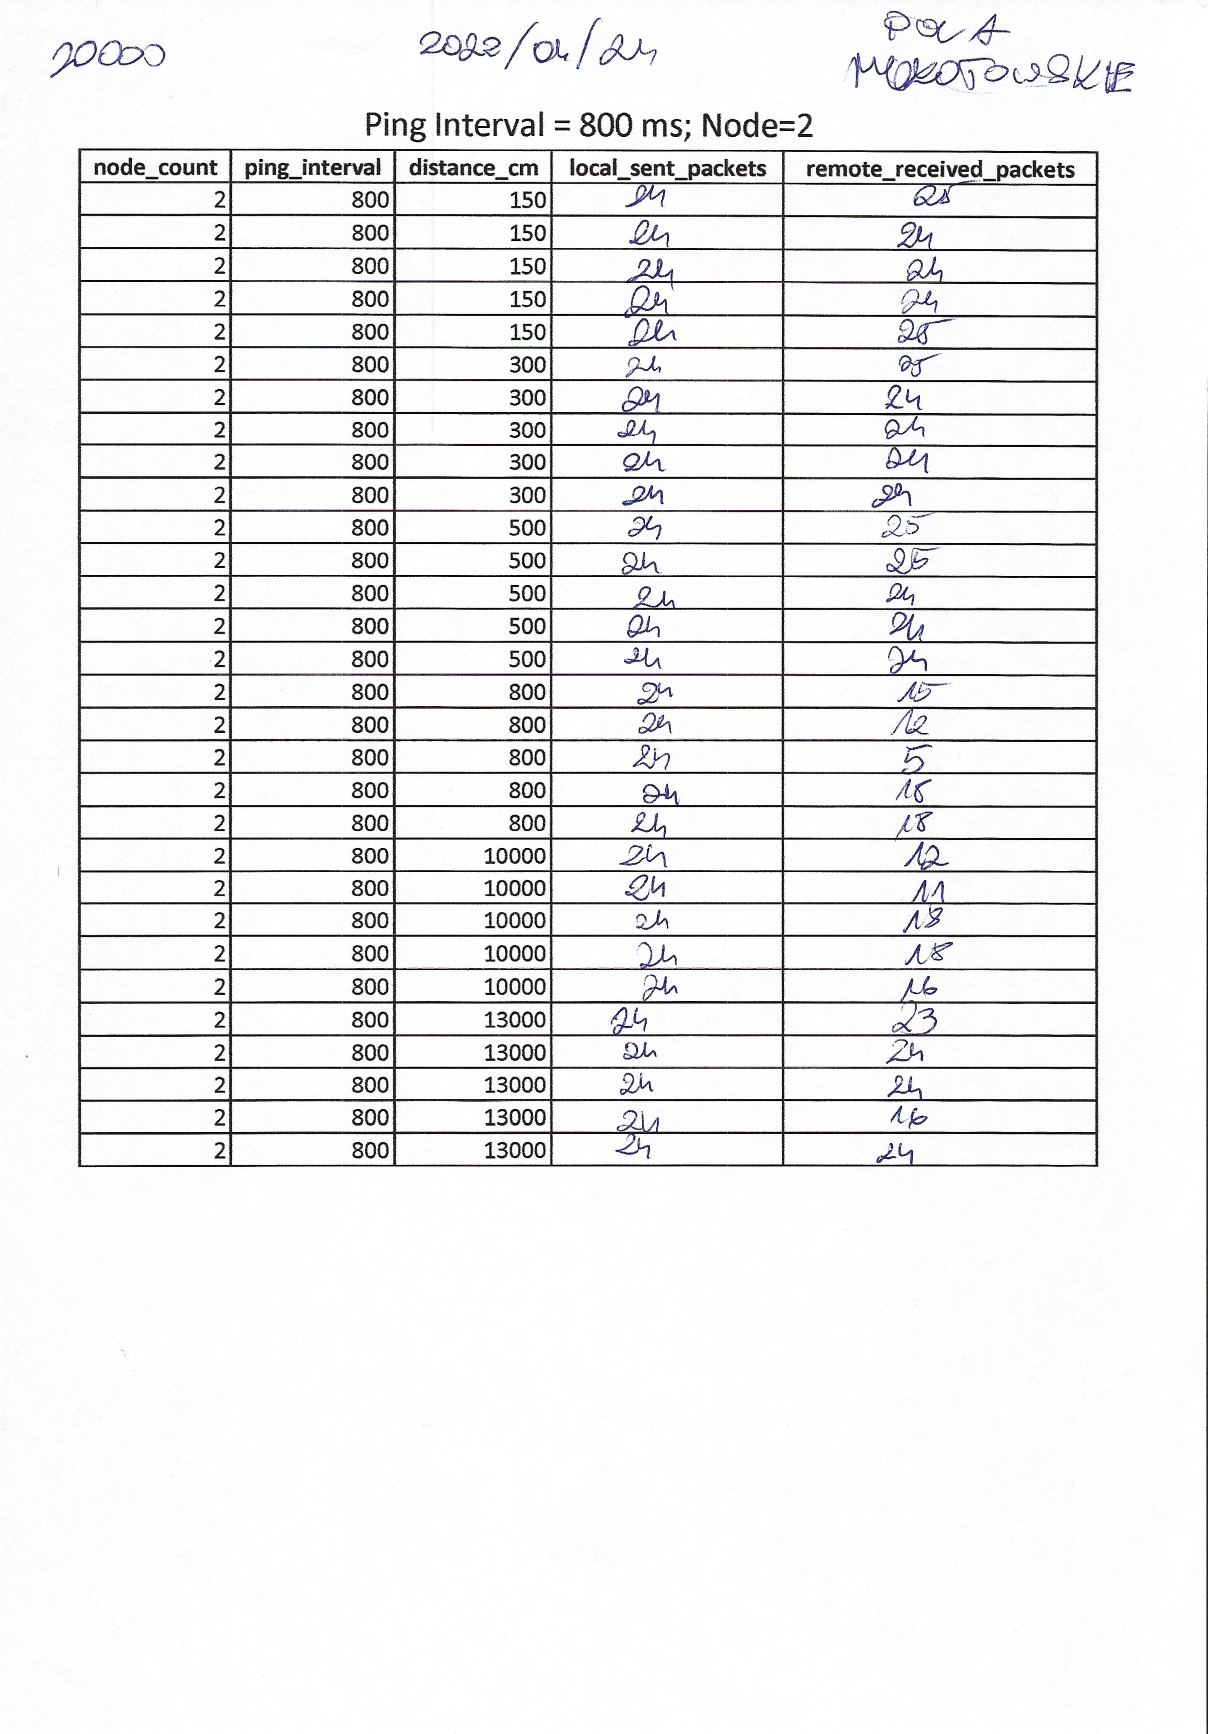 20000 2022/04/24 POLA
MOKOTOWSKIE
Ping Interval = 800 ms; Node=2
node_count ping_interval distance_cm local_sent_packets remote_received_packets
2 800 150 24 25
2 800 150 24 24
2 800 150 24 24
2 800 150 24 24
2 800 150 24 25
2 800 300 24 25
2 800 300 24 24
2 800 300 24 24
2 800 300 24 24
2 800 300 24 24
2 800 500 24 25
2 800 500 24 25
2 800 500 24 24
2 800 500 24 24
2 800 500 24 24
2 800 800 24 15
2 800 800 24 12
2 800 800 24 5
2 800 800 24
2 800 800 24 18
2 800 10000 24 12
2 800 10000 24 11
2 800 10000 24 18
2 800 10000 24 18
2 800 10000 24 16
2 800 13000 24 23
2 800 13000 24 24
2 800 13000 24 24
2 800 13000 24 16
2 800 13000 24 24